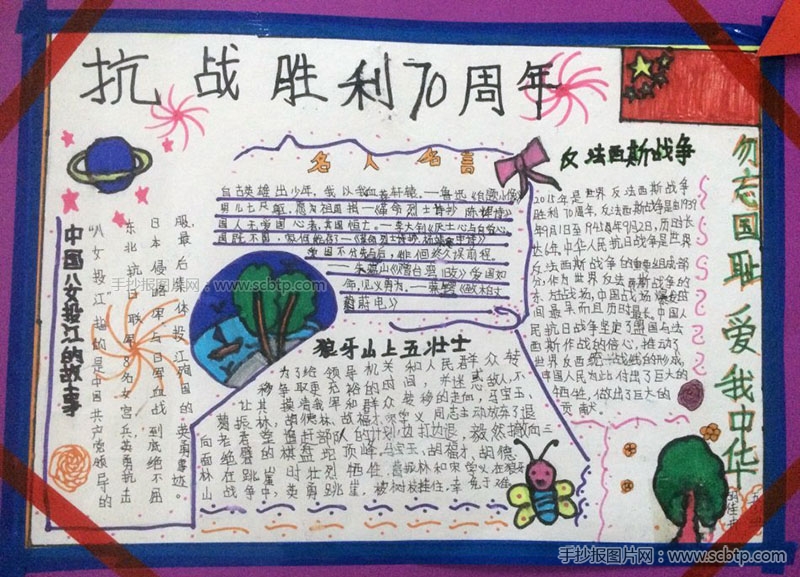 抗战胜利70周年
名人名言
自古英雄出少年,我以我血荐轩辕。——鲁迅《自题小像》
国人无爱国心者,其国恒亡。——李大钊《厌世心与自觉心》
国不分先与后,
爱国如
命,见义勇为,
反法西斯战争
2015年是世界反法西斯战争
胜利70周年,反法西斯战争是由1939
年9月1日至1945年9月2日,历时长
达6年,中华人民抗日战争是世界
反法西斯战争的重要组成部
分,作为世界反法西斯战争的
东方主战场,中国战场爆发时
间最早而且历时最长,中国人
民抗日战争坚定了盟国与法
西斯作战的信心,推动了
世界反西统一战线的形成,
中国人民为此付出了巨大的
牺牲,做出了巨大的
贡献
勿忘国耻 爱我中华
中国八女投江的故事
“八女投江”指的是中国共产党领导的
东北抗日联军八名女官兵英勇抗击
日本侵略军与日军血战到底绝不屈
服,最后集体投江殉国的英勇事迹。
狼牙山上五壮士
为了给领导机关和人民群众转
移争取更充裕的时间,并迷惑敌人,不
让其摸清我军和群众转移的走向,马宝玉、
葛振林、胡德林、胡福才、宋学义同志主动放弃了退
向老君堂追赶部队的计划,边打边退,毅然撤向三
面绝壁的棋盘陀顶峰,马宝玉、胡福才、胡德
林在跳崖时壮烈牺牲,葛振林和宋学义在狼牙
山战争中,英勇跳崖,被树枝挂住,幸免于难。
www.scbtp.com
手抄报图片网:www.scbtp.com